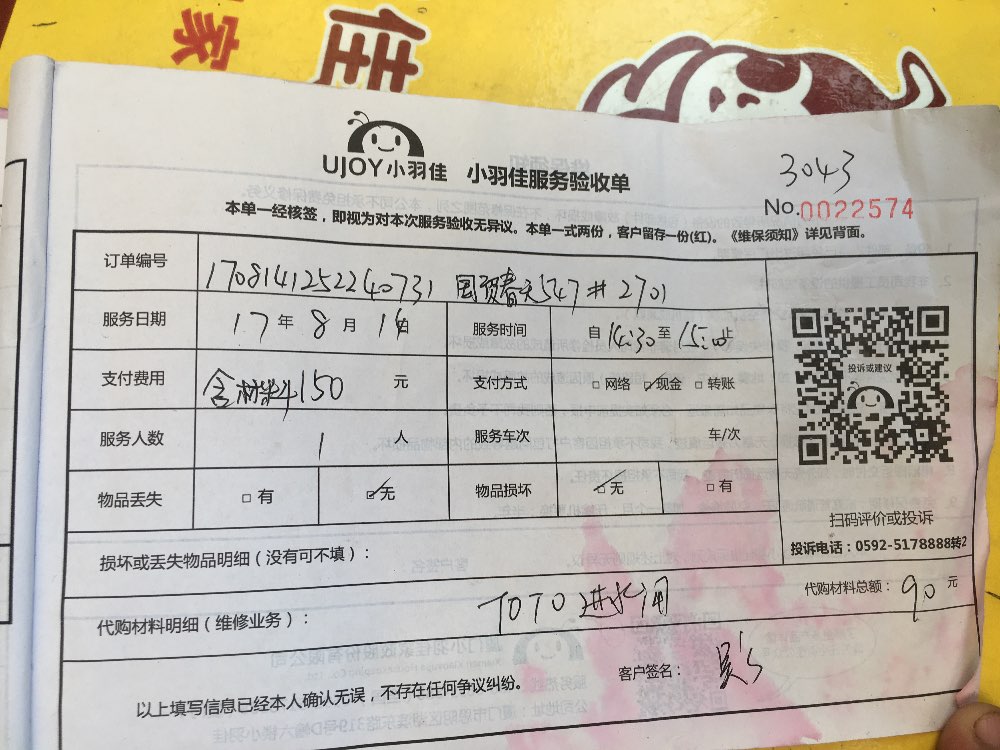 家 佳
UJOY小羽佳 小羽佳服务验收单
3043
No.0022574
本单一经核签，即视为对本次服务验收无异议。本单一式两份，客户留存一份(红)。《维保须知》详见背面。
订单编号 170814125224073１ 国贸春天547# 2701
服务日期 17年 8月 16日 服务时间 自14:30至15:00止
支付费用 含材料150 元 支付方式 □网络 ☑现金 □转账
服务人数 1 人 服务车次 车/次
物品丢失 □有 ☑无 物品损坏 ☑无 □有
投诉或建议
扫码评价或投诉
投诉电话：0592-5178888转2
损坏或丢失物品明细（没有可不填）：
代购材料明细（维修业务）： TOTO进水阀 代购材料总额： 90 元
以上填写信息已经本人确认无误，不存在任何争议纠纷。 客户签名：